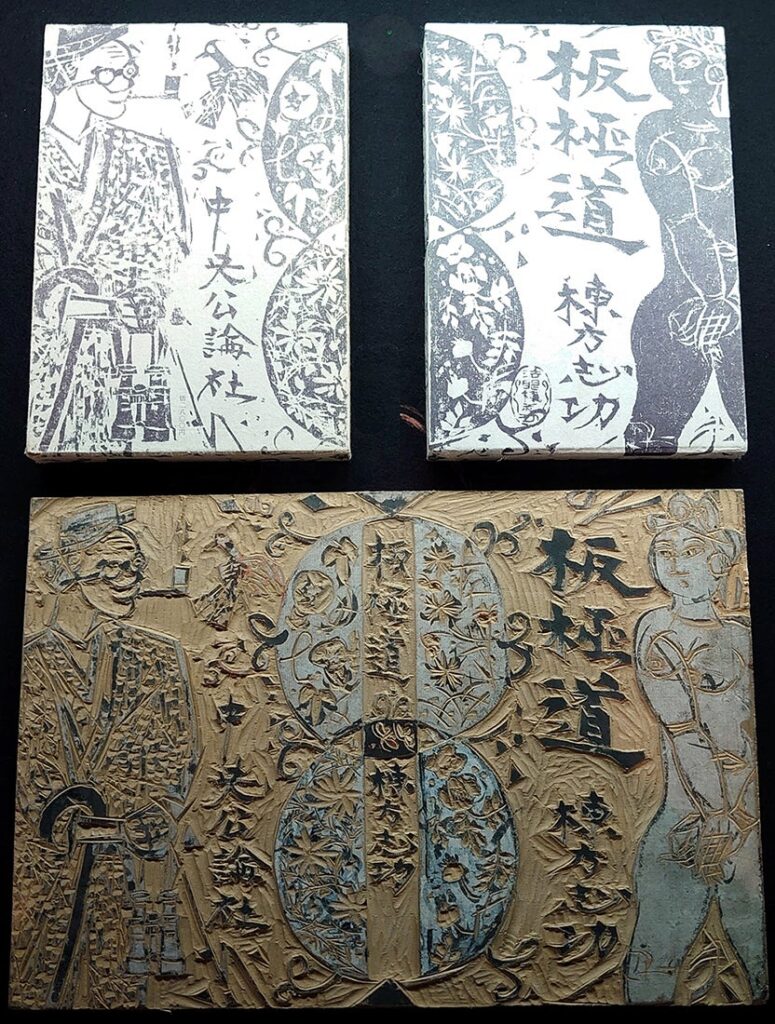 中央公論社
板極道
棟方志功
板極道
棟方志功
中央公論社
板極道
棟方志功